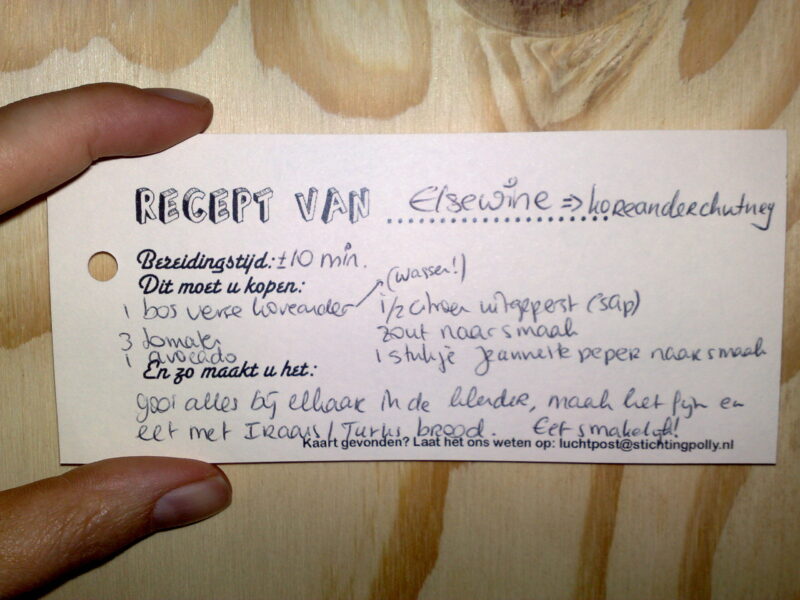 RECEPT VAN Elsewine => koreanderchutney
Bereidingstijd: ± 10 min.
Dit moet u kopen: (wassen!)
1 bos verse koreander 1/2 citroen uitgeperst (sap)
3 tomaten zout naar smaak
1 avocado 1 stukje Jeannette peper naar smaak
En zo maakt u het:
gooi alles bij elkaar in de blender, maak het fijn en
eet met Iraaks/Turks brood. Eet smakelijk!
Kaart gevonden? Laat het ons weten op: luchtpost@stichtingpolly.nl